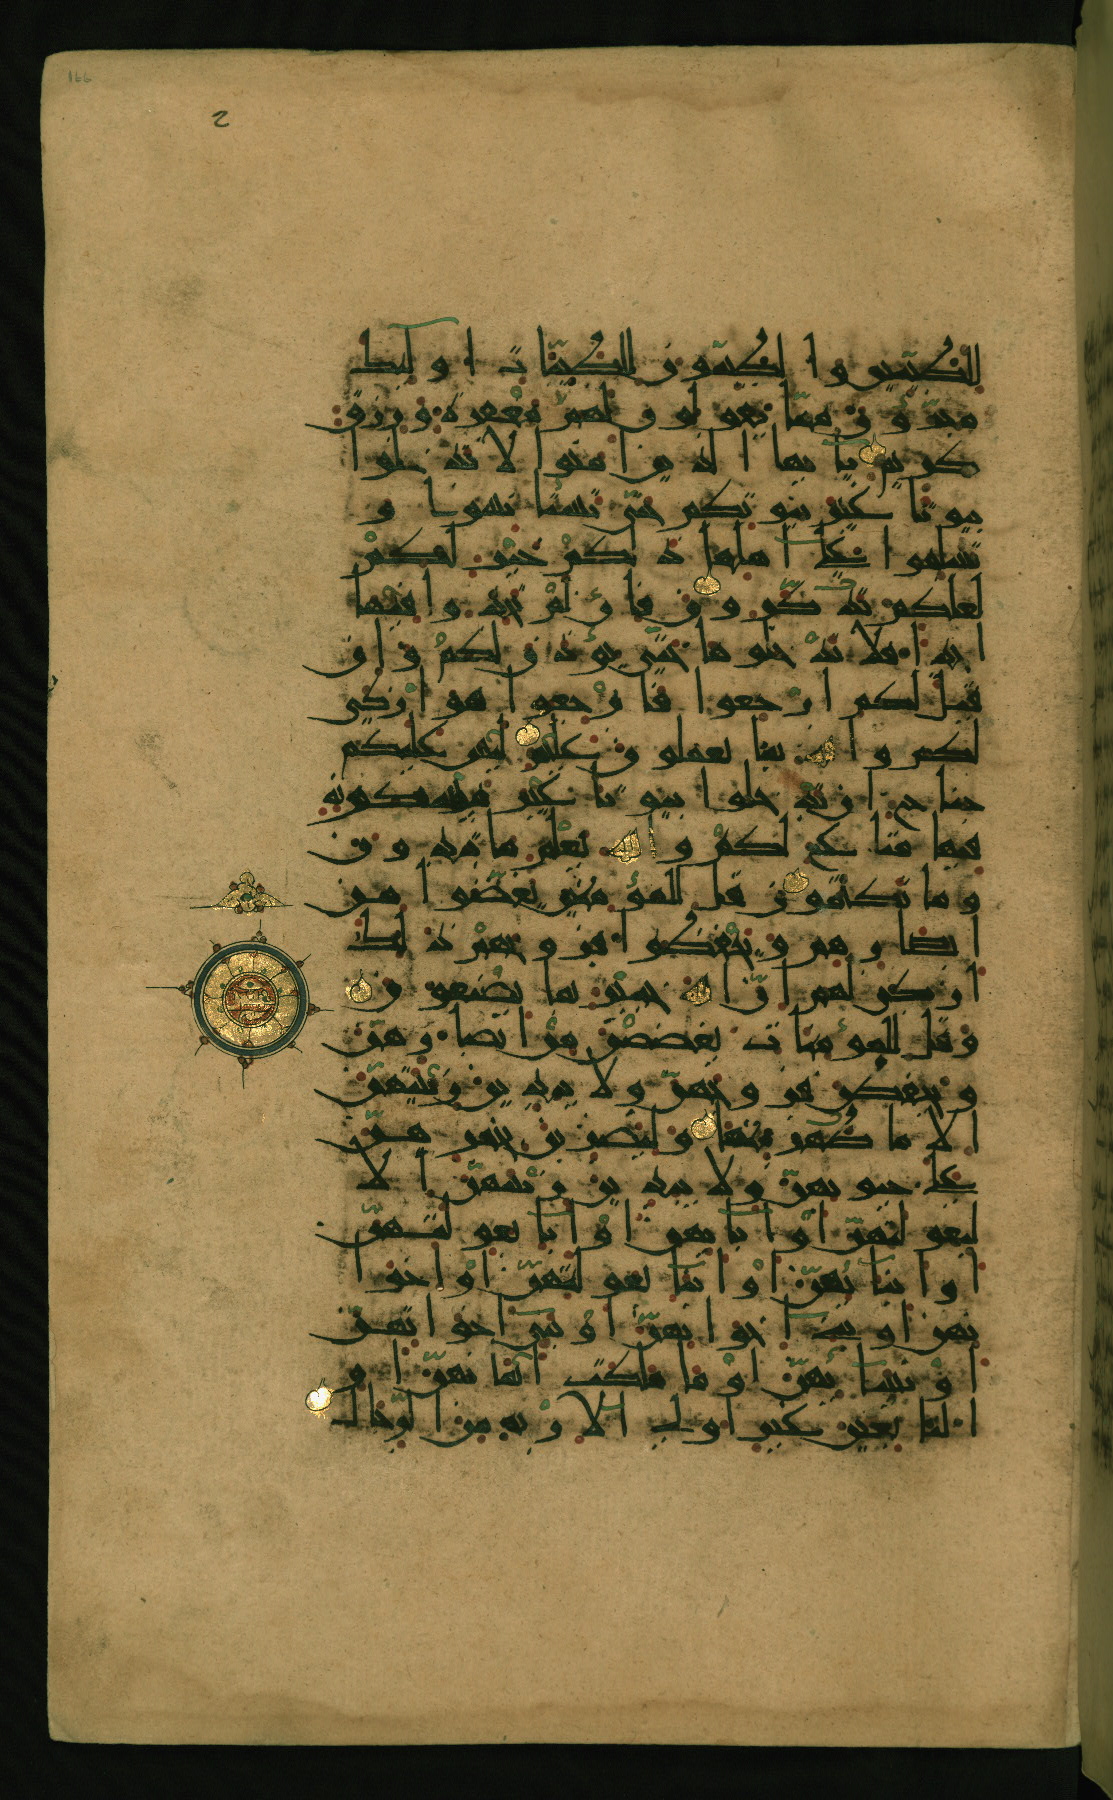 166
2
للطيبين والطيبون للطيبات اولئك
مبرؤن مما يقولون لهم مغفرة ورزق
كريم يا ايها الذين امنوا لا تدخلوا
بيوتا غير بيوتكم حتى تستأنسوا و
تسلموا على اهلها ذلكم خير لكم
لعلكم تذكرون فان لم تجدوا فيها
احدا فلا تدخلوها حتى يؤذن لكم وان
قيل لكم ارجعوا فارجعوا هو ازكى
لكم والله بما تعملون عليم ليس عليكم
جناح ان تدخلوا بيوتا غير مسكونة
فيها متاع لكم والله يعلم ما تبدون
وما تكتمون قل للمؤمنين يغضوا من
ابصارهم ويحفظوا فروجهم ذلك
ازكى لهم ان الله خبير بما يصنعون
وقل للمؤمنات يغضضن من ابصارهن
ويحفظن فروجهن ولا يبدين زينتهن
الا ما ظهر منها وليضربن بخمرهن
على جيوبهن ولا يبدين زينتهن الا
لبعولتهن او ابائهن او اباء بعولتهن
او ابنائهن او ابناء بعولتهن او اخوا
نهن او بنى اخوانهن او بنى اخواتهن
او نسائهن او ما ملكت ايمانهن او
التابعين غير اولى الاربة من الرجال